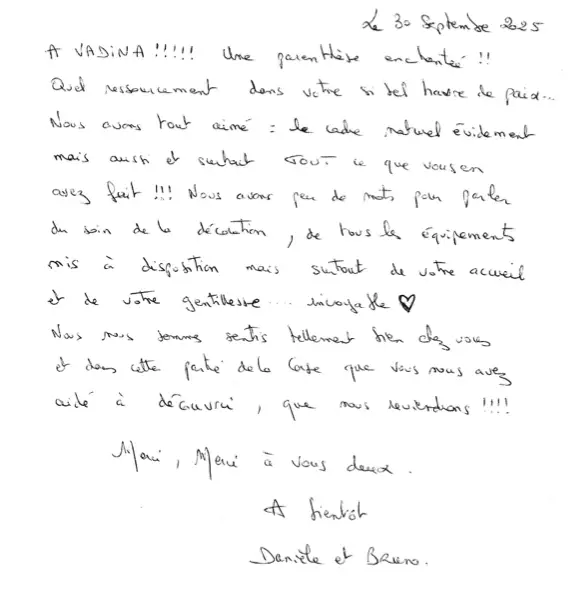 Le 30 Septembre 2025
A VADINA !!!!! Une parenthèse enchantée !!
Quel ressourcement dans votre si bel havre de paix...
Nous avons tout aimé : le cadre naturel évidement
mais aussi et surtout TOUT ce que vous en
avez fait !!! Nous avons peu de mots pour parler
du soin de la décoration, de tous les équipements
mis à disposition mais surtout de votre accueil
et de votre gentillesse .... incroyable ♡
Nous nous sommes sentis tellement bien chez vous
et dans cette partie de la Corse que vous nous avez
aidé à découvrir, que nous reviendrons !!!!
Merci, Merci à vous deux.
A bientôt
Danièle et Bruno.